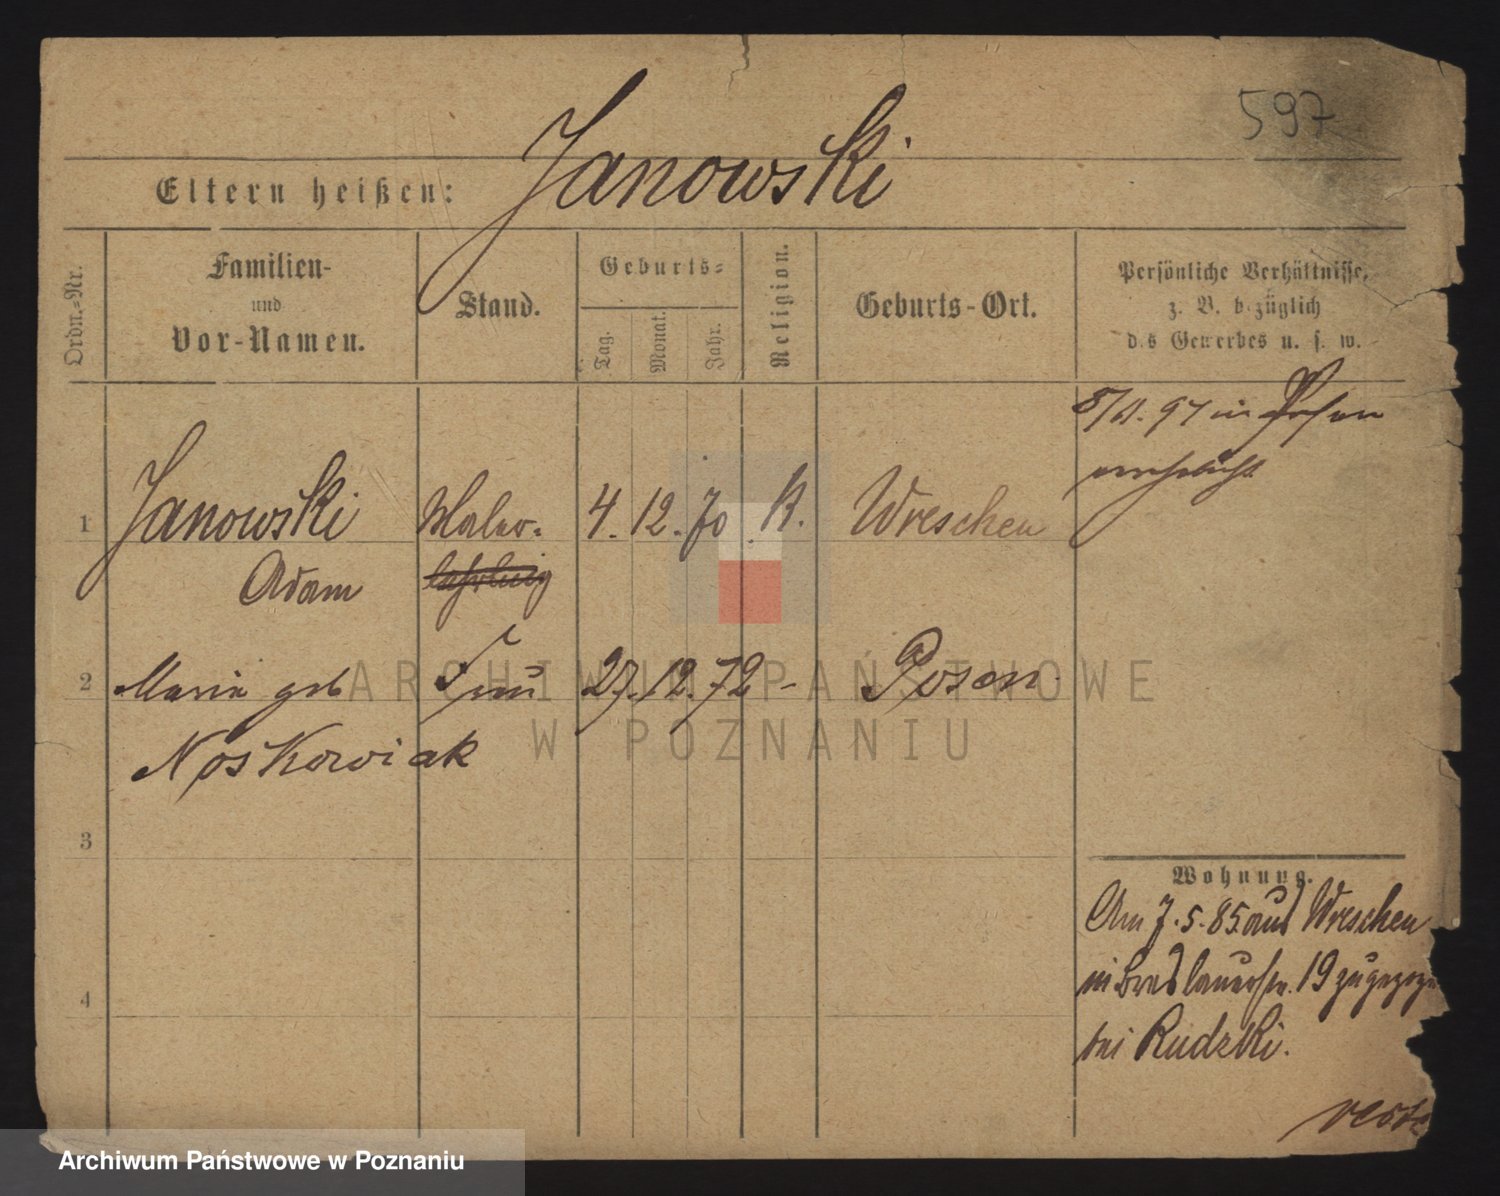 597
Janowski
Eltern heißen:
Ordn.-Nr.
Familien-
und
Vor-Namen.
Stand.
Geburts-
Tag.
Monat.
Jahr.
Religion.
Geburts-Ort.
Persönliche Verhältnisse,
z. B. bezüglich
des Gewerbes u. s. w.
97 in Posen
verehelicht
1 Janowski Maler- 4. 12. 70 K. Wreschen
Adam lehrling
2 Maria geb Frau 27. 12. 72 - Posen.
Noskowiak
3
4
Wohnung.
Am 7.5.85 aus Wreschen
in Breslauerstr. 19 zugezoge
bei Rudzki.
ARCHIWUM PAŃSTWOWE
W POZNANIU
Archiwum Państwowe w Poznaniu